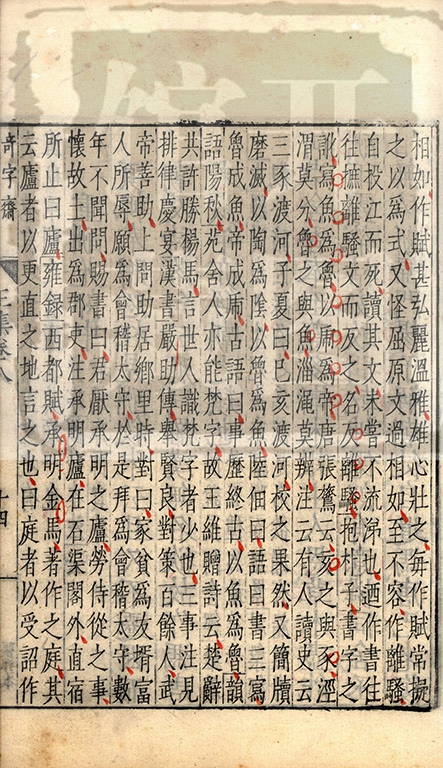 相如作賦甚弘麗溫雅雄心壯之每作賦常擬
之以爲式又怪屈原文過相如至不容作離騷
自投江而死讀其文未嘗不流涕也迺作書往
往摭離騷文而反之名反離騷抱朴子書字之
訛寫魚爲魯以帝爲虎唐張鷟云亥之與豕涇
渭莫分魯之與魚淄澠莫辨注云有人讀史云
三豕渡河子夏曰己亥渡河校之果然又簡牘
磨滅以陶爲陰以魯爲魚陸佃曰語曰書三寫
魯成魚帝成虎古語曰事歷終古以魚爲魯韻
語陽秋苑舍人亦能梵字故王維贈詩云楚辭
共許勝楊馬言世人識梵字者少也三事注見
排律慶宴漢書嚴助傳擧賢良對策百餘人武
帝善助上問助居鄉里時對曰家貧爲友壻富
人所辱願爲會稽太守於是拜爲會稽太守數
年不聞問賜書曰君厭承明之廬勞侍從之事
懷故土出爲郡吏注承明廬在石渠閣外直宿
所止曰廬雍録西都賦承明金馬著作之庭其
云廬者以更直之地言之也曰庭者以受詔作
奇字齋
集卷八
十四